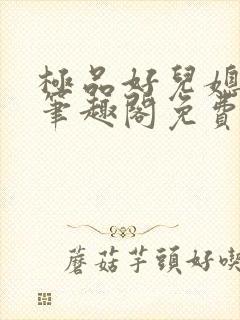 極品好兒媳
筆趣閣免費
蘑菇芋頭好喫